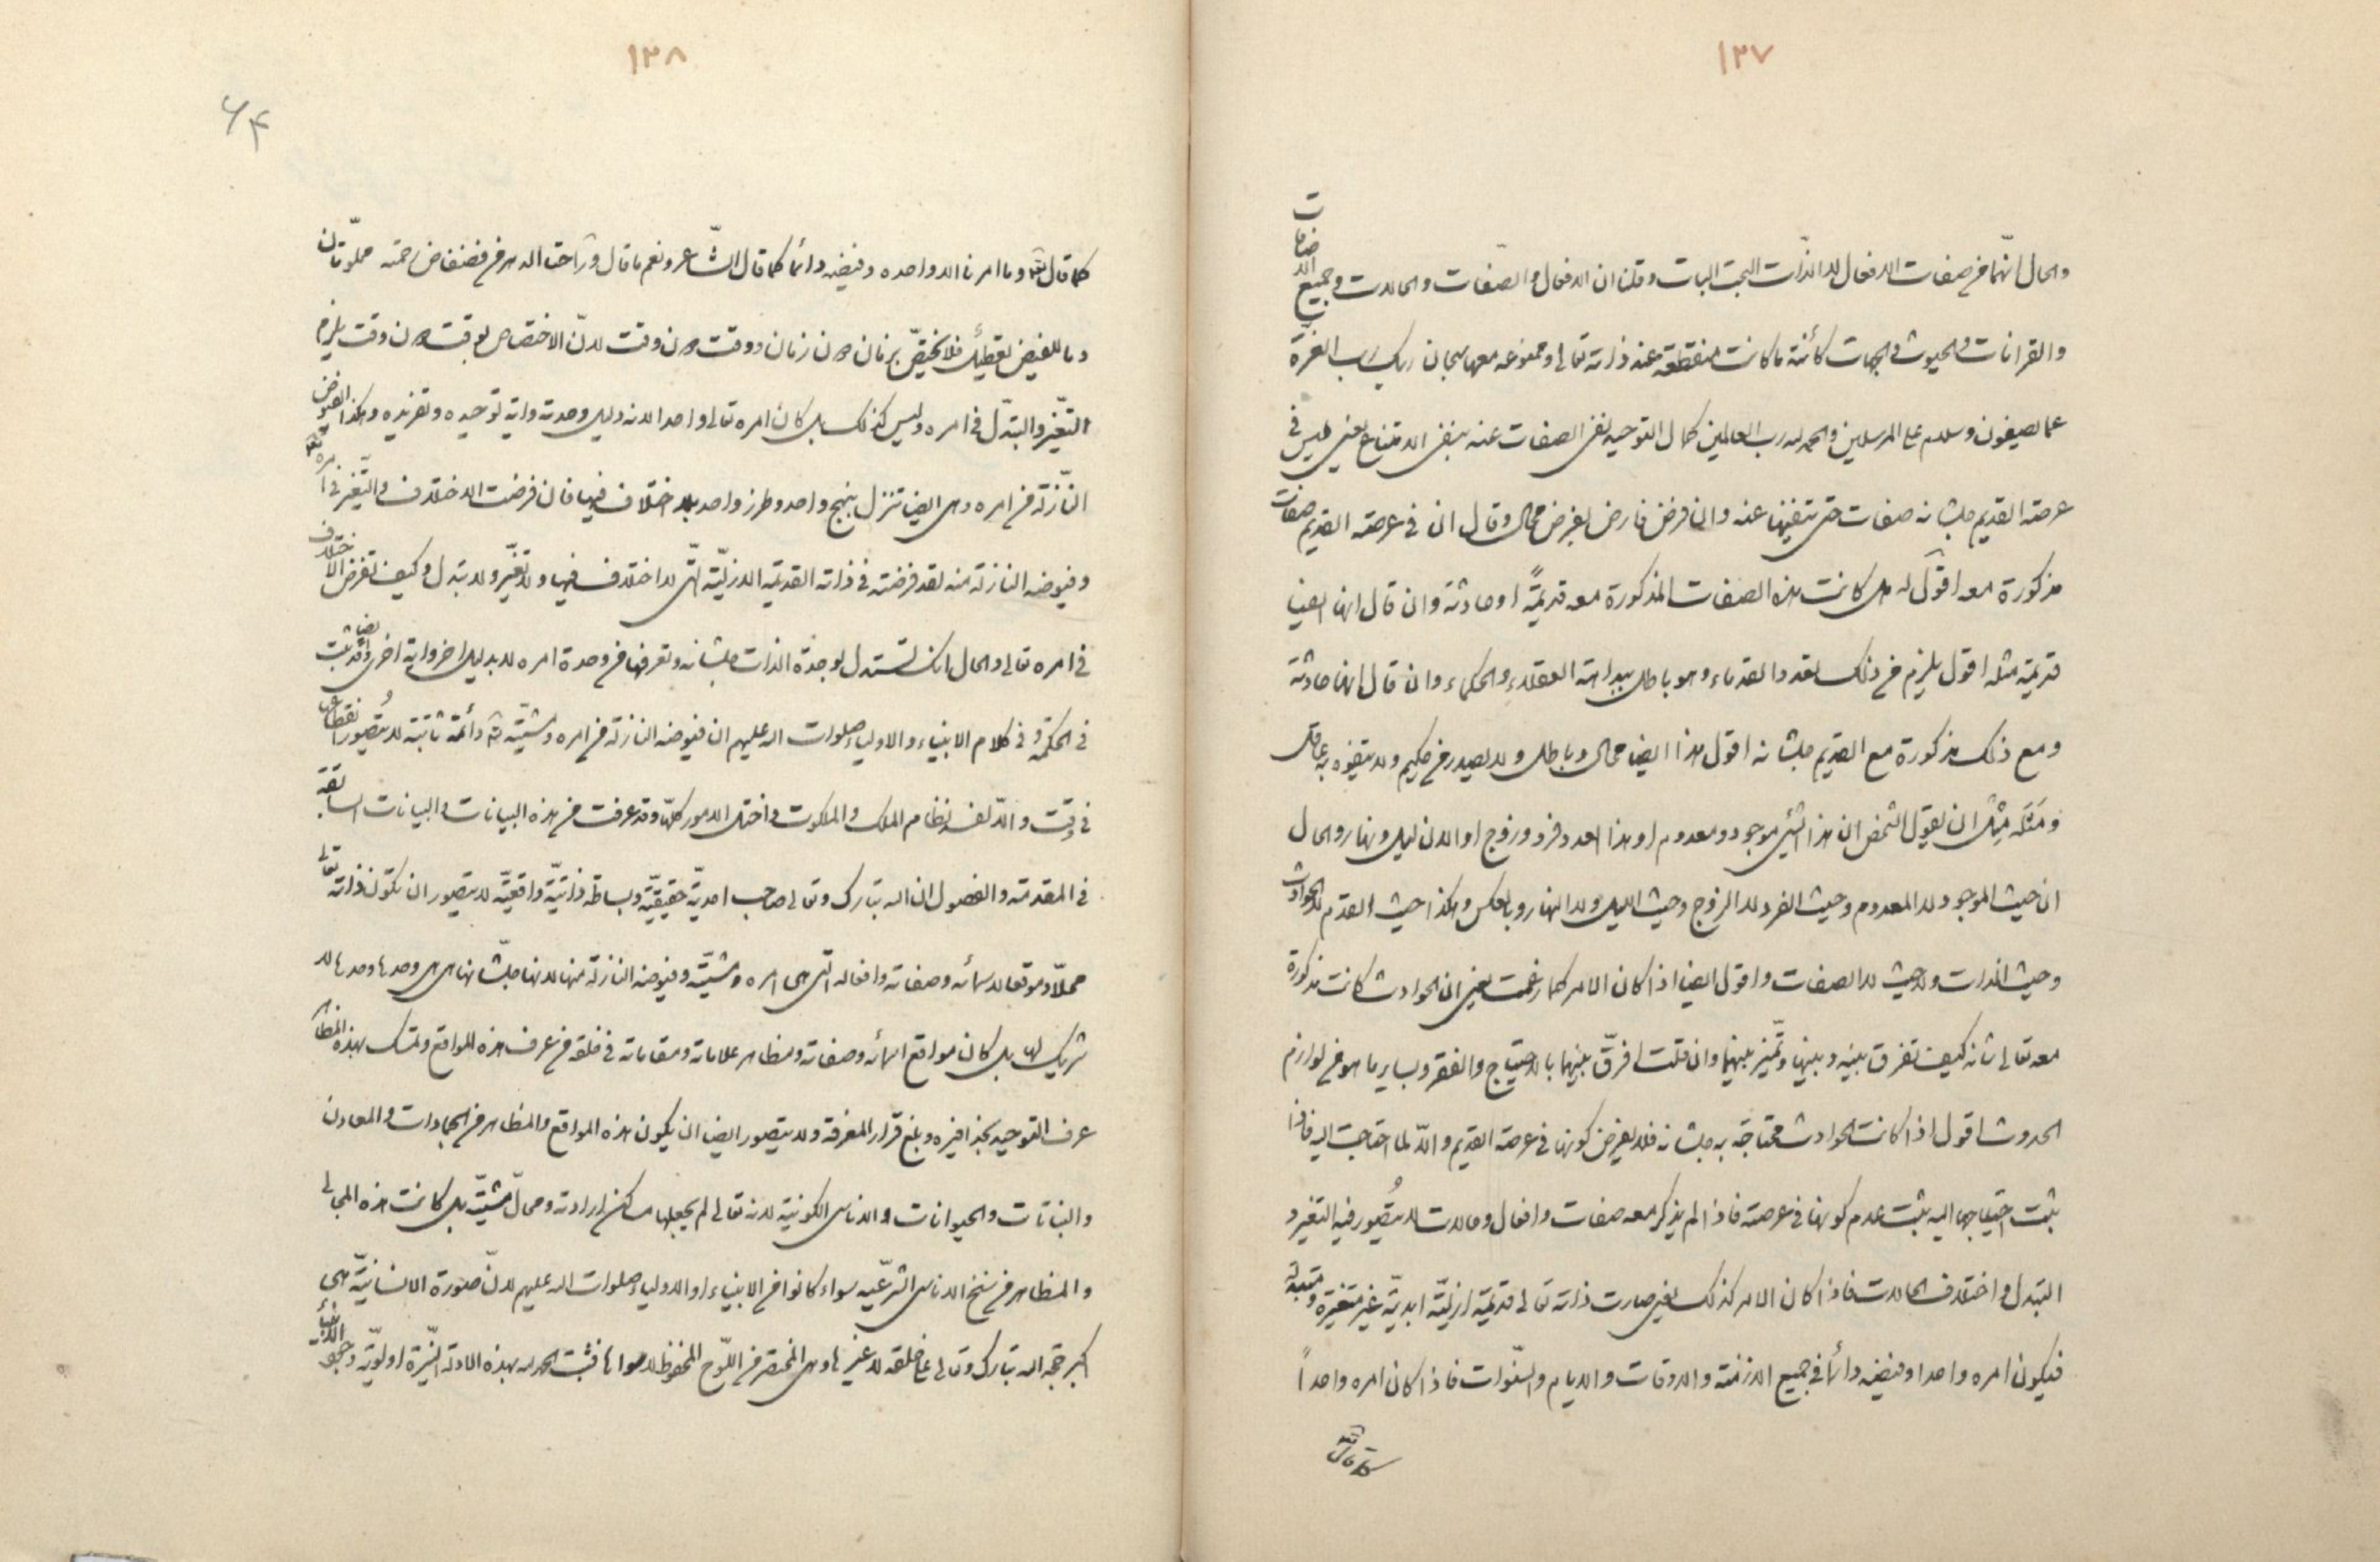 ١٢٧
والحال انّهما من صفات الافعال لا الذّات البحت البات وقلنا ان الافعال والصّفات والحالات وجميع الاضافات
والقرانات والحيوث والجهات كائنة ما كانت منقطعة عند ذاته تعالى وممنوعه معها سبحان ربك رب العزة
عما يصفون وسلام على المرسلين والحمد لله رب العالمين كمال التوحيد نفى الصفات عنه بنفى الامتناع يعنى ليس فى
عرصة القديم جلشانه صفات حتى تنفيها عنه وان فرض فارض بفرض محال وقال ان فى عرصة القديم صفات
مذكورة معه اقول له هل كانت هذه الصفات المذكورة معه قديمةً او حادثة وان قال انها ايضا
قديمة مثله اقول يلزم من ذلك تعدد القدماء وهو باطل ببداهة العقلاء والحكماء وان قال انها حادثة
ومع ذلك مذكورة مع القديم جلشانه اقول هذا ايضا محال وباطل ولا يصدر من حكيم ولا يتفوه به عاقل
ومَثَله مِثل ان يقول الشخص ان هذا الشئ موجود ومعدوم او هذا العدد فرد وزوج او الان ليل ونهار والحال
ان حيث الموجود لا المعدوم وحيث الفرد لا الزوج وحيث الليل ولا النهار وبالعكس وهكذا حيث القدم لا الحوادث
وحيث الذات ولا حيث لا الصفات واقول ايضا اذا كان الامر كما زعمت يعنى ان الحوادث كانت مذكورة
معه تعالى شانه كيف تفرق بينه وبينها وتميّز بينهما وان قلت افرّق بينهما بالاحتياج والفقر وساير ما هو من لوازم
الحدوث اقول اذا كانت الحوادث محتاجة به جلشانه فلا يفرض كونها فى عرصة القديم والّا لما احتاجت اليه فاذا
ثبت احتياجها اليه يثبت عدم كونها فى عرصته فاذا لم يذكر معه صفات وافعال وحالات لا يُتصّور فيه التغير و
التبدل واختلاف الحالات فاذا كان الامر كذلك يعنى صارت ذاته تعالى قديمة ازليّة ابديّة غير متغيرة ومتبدلة
فيكون امره واحدا وفيضه دائما فى جميع الازمنة والاوقات والايام والسّنوات فاذا كان امره واحداً
كما قال
١٢٨
۶۴
كما قال وما امرنا الا واحده وفيضه دائماً كما قال الشّاعر ونعم ما قال وراحت الدهر من فضفاض رحمته مملوّتان
وما للفيض تعطيل فلا يختصّ بزمان دون زمان ووقت دون وقت لانّ الاختصاص بوقت دون وقت يلزم
التّغير والتبدّل فى امره وليس كذلك بل كان امره تعالى واحدا لانه دليل وحدته واية توحيده وتفريده وهكذا الفيوض
النّازلة من امره وهى ايضا تنزل بنهج واحد وطرز واحد بلا اختلاف فيها فان فرضت الاختلاف والتغير فى امره
وفيوضه النازلة منه لقد فرضته فى ذاته القديمة الازليّة الّتى لا اختلاف فيها ولا تغيّر ولا تبدل وكيف تفرض الاختلاف
فى امره تعالى والحال انك تستدل لوحدة الذات جلشانه وتعرفها من وحدة امره لا بدليل اخر واية اخرى وايضا قد ثبت
فى الحكمة وفى كلام الانبياء والاولياء صلوات الله عليهم ان فيوضه النازلة من امره ومشيّته دائمة ثابتة لا يُتصّور انقطاعها
فى وقت والّا لفسد نظام الملك والملكوت واختل الامور كلّها وقد عرفت من هذه البيانات والبيانات السابقة
فى المقدمة والفصول ان الله تبارك وتعالى صاحب احديّة حقيقيّة وبساطة ذاتيّة واقعيّة لا يتصور ان تكون ذاته تعالى
محلّا وموقعا لاسمائه وصفاته وافعاله التى هى امره ومشيّته وفيوضه النازلة منها لانها جلّشانها هى هى وحدها وحدها لا
شريك لها بل كان مواقع اسمائه وصفاته ومظاهر علاماته ومقاماته فى خلقه من عرف هذه المواقع وتمسك بهذه المظاهر
عرف التوحيد بحذافيره وبلغ قرار المعرفة ولا يتصور ايضا ان يكون هذه المواقع والمظاهر من الجمادات والمعادن
والنباتات والحيوانات والاناس الكونية لانه تعالى لم يجعلها مساكن ارادته ومحالّ مشيّته بل كانت هذه المجالى
والمظاهر من سنخ الاناس الشرعّيه سواء كانوا من الانبياء او الاولياء صلوات الله عليهم لانّ صورة الانسانيّة هى
اكبر حجة الله تبارك وتعالى على خلقه لا غيرها وهى المختصر من اللّوح المحفوظ لا سواها فثبت الحمد لله بهذه الادلة النيّرة اولويّة وجود الانبياء